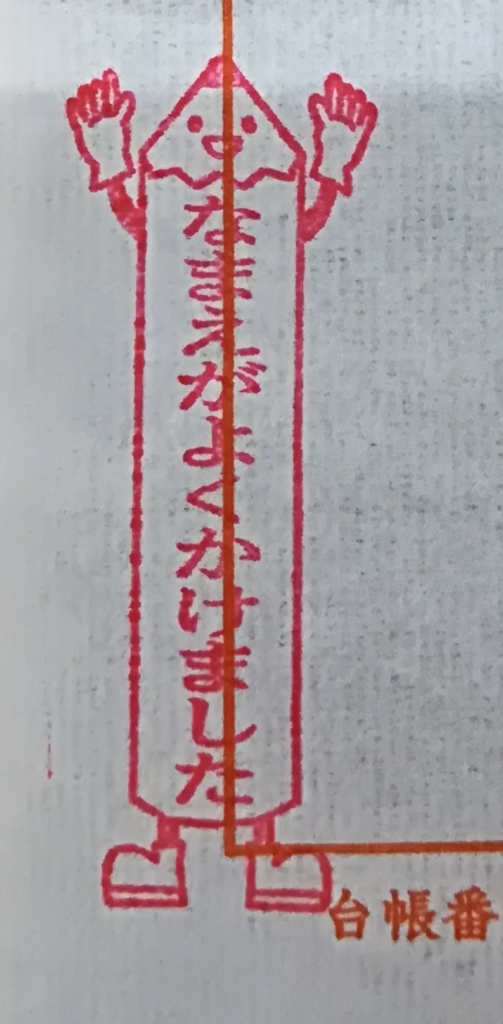 なまえがよくかけました
台帳番